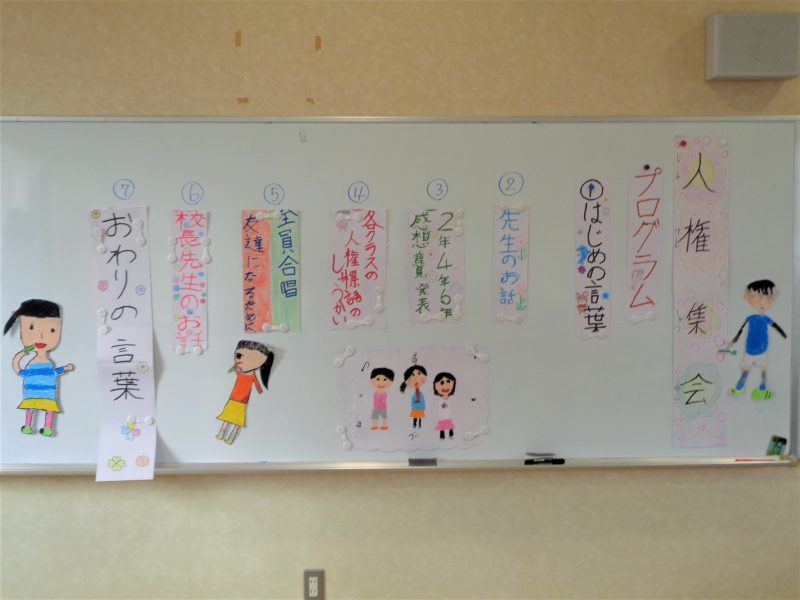 人権集会
プログラム
①はじめの言葉
②
先生のお話
③
2年4年6年
感想意見発表
④
各クラスの
人権標語の
しょうかい
⑤
全員合唱
友達になるために
⑥
校長先生のお話
⑦
おわりの言葉